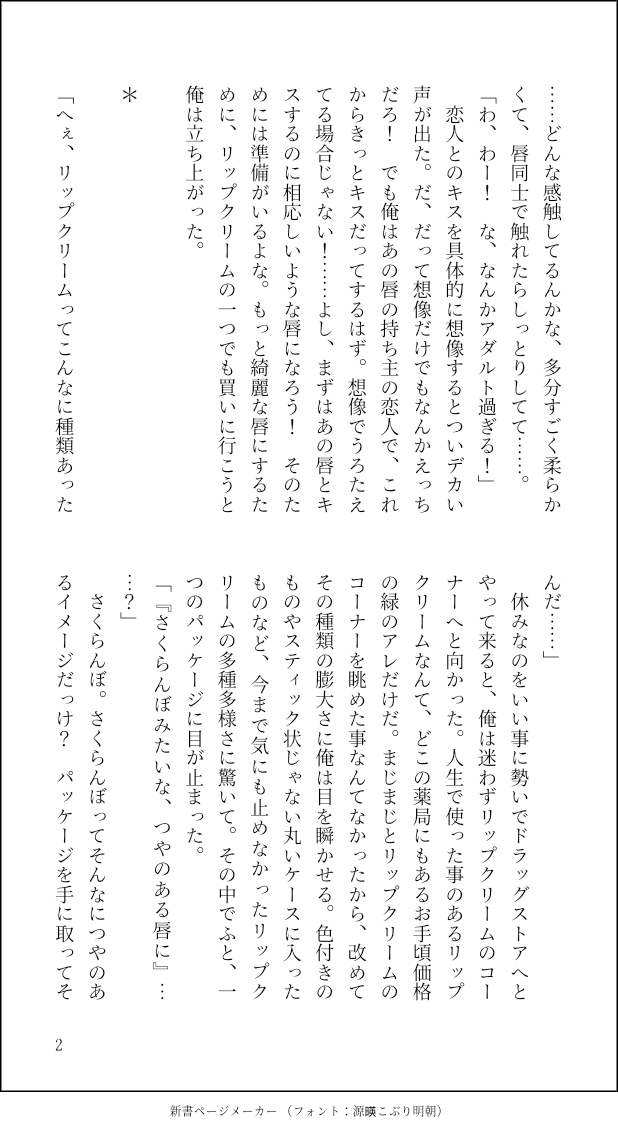 ……どんな感触してるんかな、多分すごく柔らか
くて、唇同士で触れたらしっとりしてて……。
「わ、わー！　な、なんかアダルト過ぎる！」
　恋人とのキスを具体的に想像するとついデカい
声が出た。だ、だって想像だけでもなんかえっち
だろ！　でも俺はあの唇の持ち主の恋人で、これ
からきっとキスだってするはず。想像でうろたえ
てる場合じゃない！……よし、まずはあの唇とキ
スするのに相応しいような唇になろう！　そのた
めには準備がいるよな。もっと綺麗な唇にするた
めに、リップクリームの一つでも買いに行こうと
俺は立ち上がった。
＊
「へぇ、リップクリームってこんなに種類あった
んだ……」
　休みなのをいい事に勢いでドラッグストアへと
やって来ると、俺は迷わずリップクリームのコー
ナーへと向かった。人生で使った事のあるリップ
クリームなんて、どこの薬局にもあるお手頃価格
の緑のアレだけだ。まじまじとリップクリームの
コーナーを眺めた事なんてなかったから、改めて
その種類の膨大さに俺は目を瞬かせる。色付きの
ものやスティック状じゃない丸いケースに入った
ものなど、今まで気にも止めなかったリップク
リームの多種多様さに驚いて。その中でふと、一
つのパッケージに目が止まった。
「『さくらんぼみたいな、つやのある唇に』…
…？」
　さくらんぼ。さくらんぼってそんなにつやのあ
るイメージだっけ？　パッケージを手に取ってそ
2
新書ページメーカー（フォント：源暎こぶり明朝）